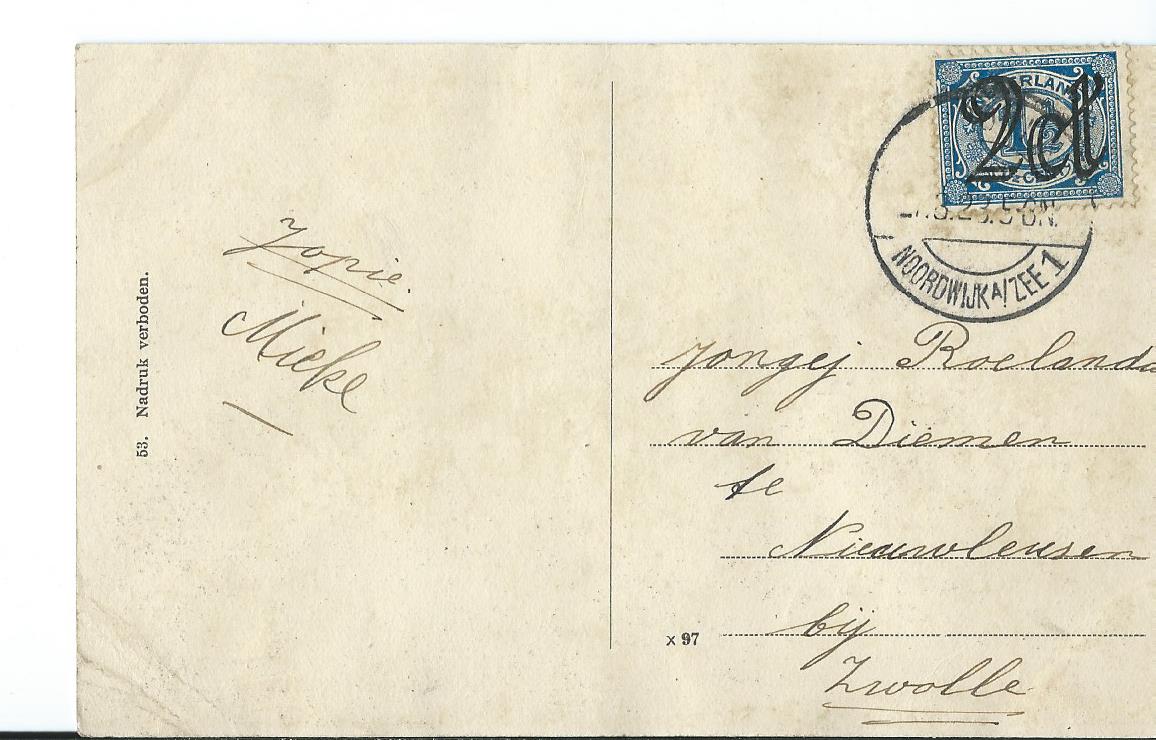 53. Nadruk verboden.
Jopie.
Mieke
2ct
NOORDWIJK A/ZEE 1
Jongej Roelanda
van Diemen
te
Nieuwleusen
bij
Zwolle
x 97